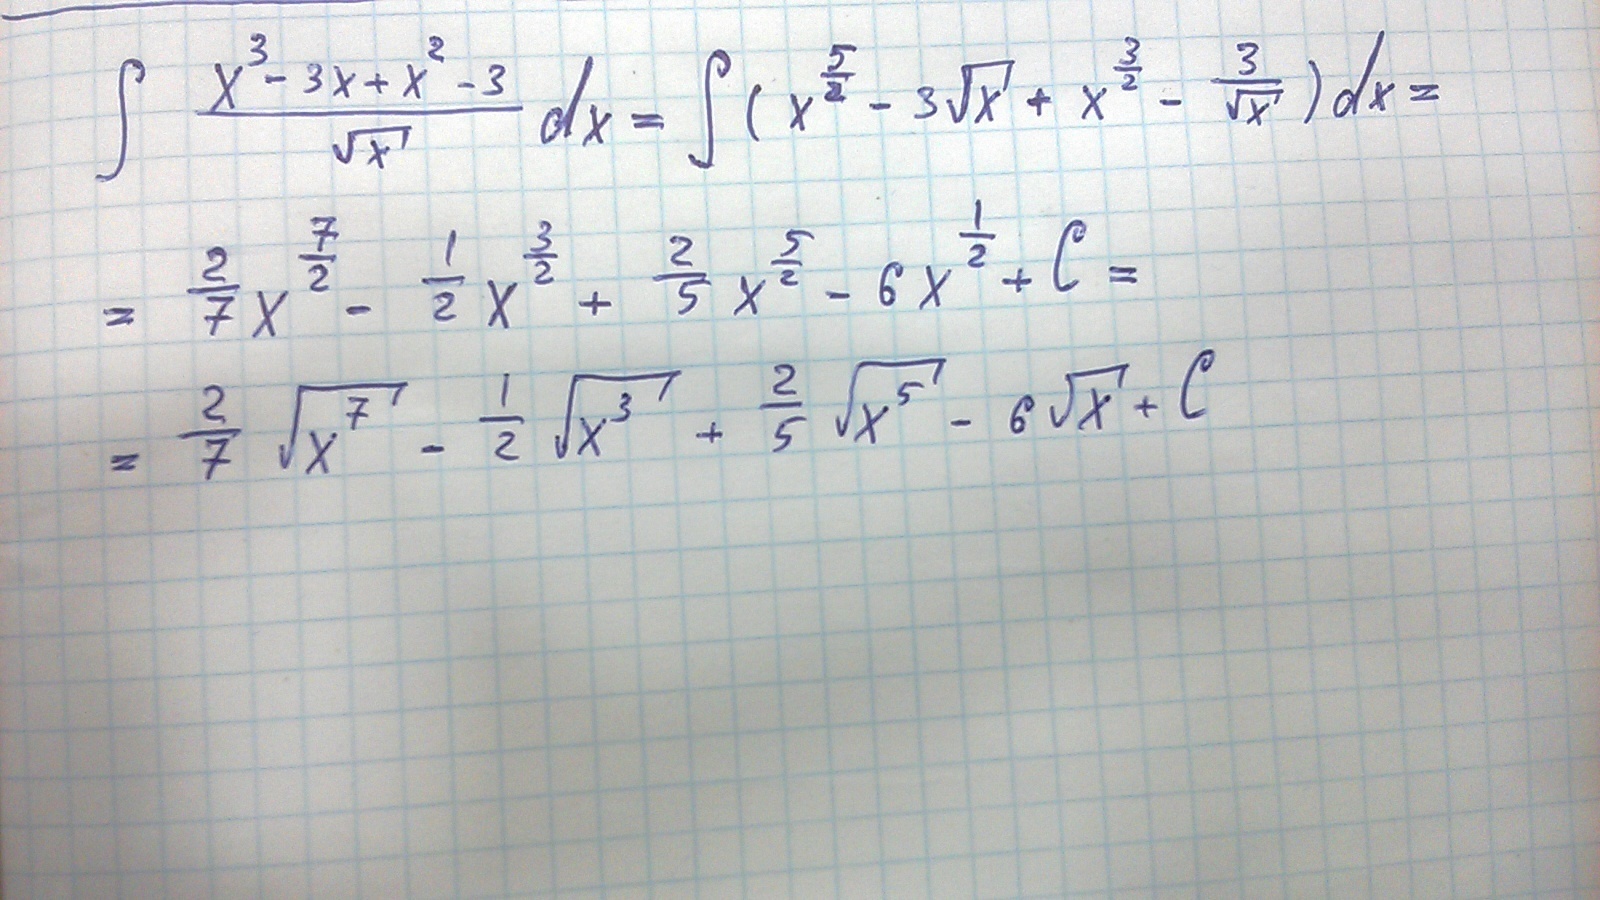 ∫ (x³ - 3x + x² - 3)/√x dx = ∫ (x^(5/2) - 3√x + x^(3/2) - 3/√x) dx =
= 2/7 x^(7/2) - 1/2 x^(3/2) + 2/5 x^(5/2) - 6x^(1/2) + C =
= 2/7 √x⁷ - 1/2 √x³ + 2/5 √x⁵ - 6√x + C